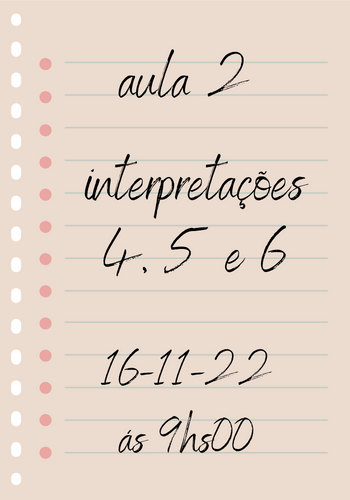 aula 2
interpretações
4. 5 e 6
16-11-22
ás 9hs00